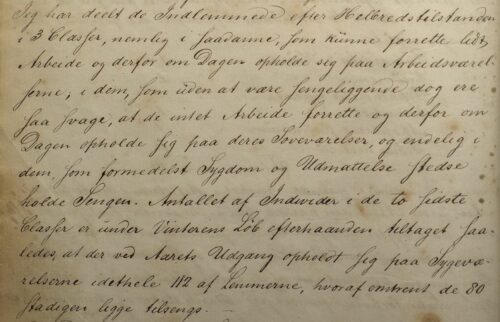 Jeg har deelt de Indlemmede efter Helbredstilstanden
i 3 Classer, nemlig i saadanne, som kunne forrette lidt
Arbeide og derfor om Dagen opholde sig paa Arbeidsværel-
serne; i dem, som uden at være sengeliggende dog ere
saa svage, at de intet Arbeide forrette og derfor om
Dagen opholde sig paa deres Soveværelser, og endelig i
dem, som formedelst Sygdom og Udmattelse stedse
holde Sengen. Antallet af Individer i de to sidste
Classer er under Vinterens Løb efterhaanden tiltaget saa-
ledes, at der ved Aarets Udgang opholdt sig paa Sygevæ-
relserne idethele 112 af Lemmerne, hvoraf omtrent de 80
stadigen ligge tilsengs.